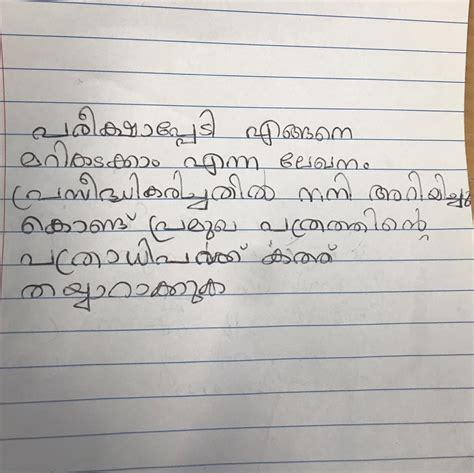 പരീക്ഷാപ്പേടി എങ്ങനെ
മറികടക്കാം എന്ന ലേഖനം
പ്രസിദ്ധികരിച്ചതിൽ നന്ദി അറിയിച്ചു
കൊണ്ട് പ്രമുഖ പത്രത്തിന്റെ
പത്രാധിപർക്ക് കത്ത്
തയ്യാറാക്കുക